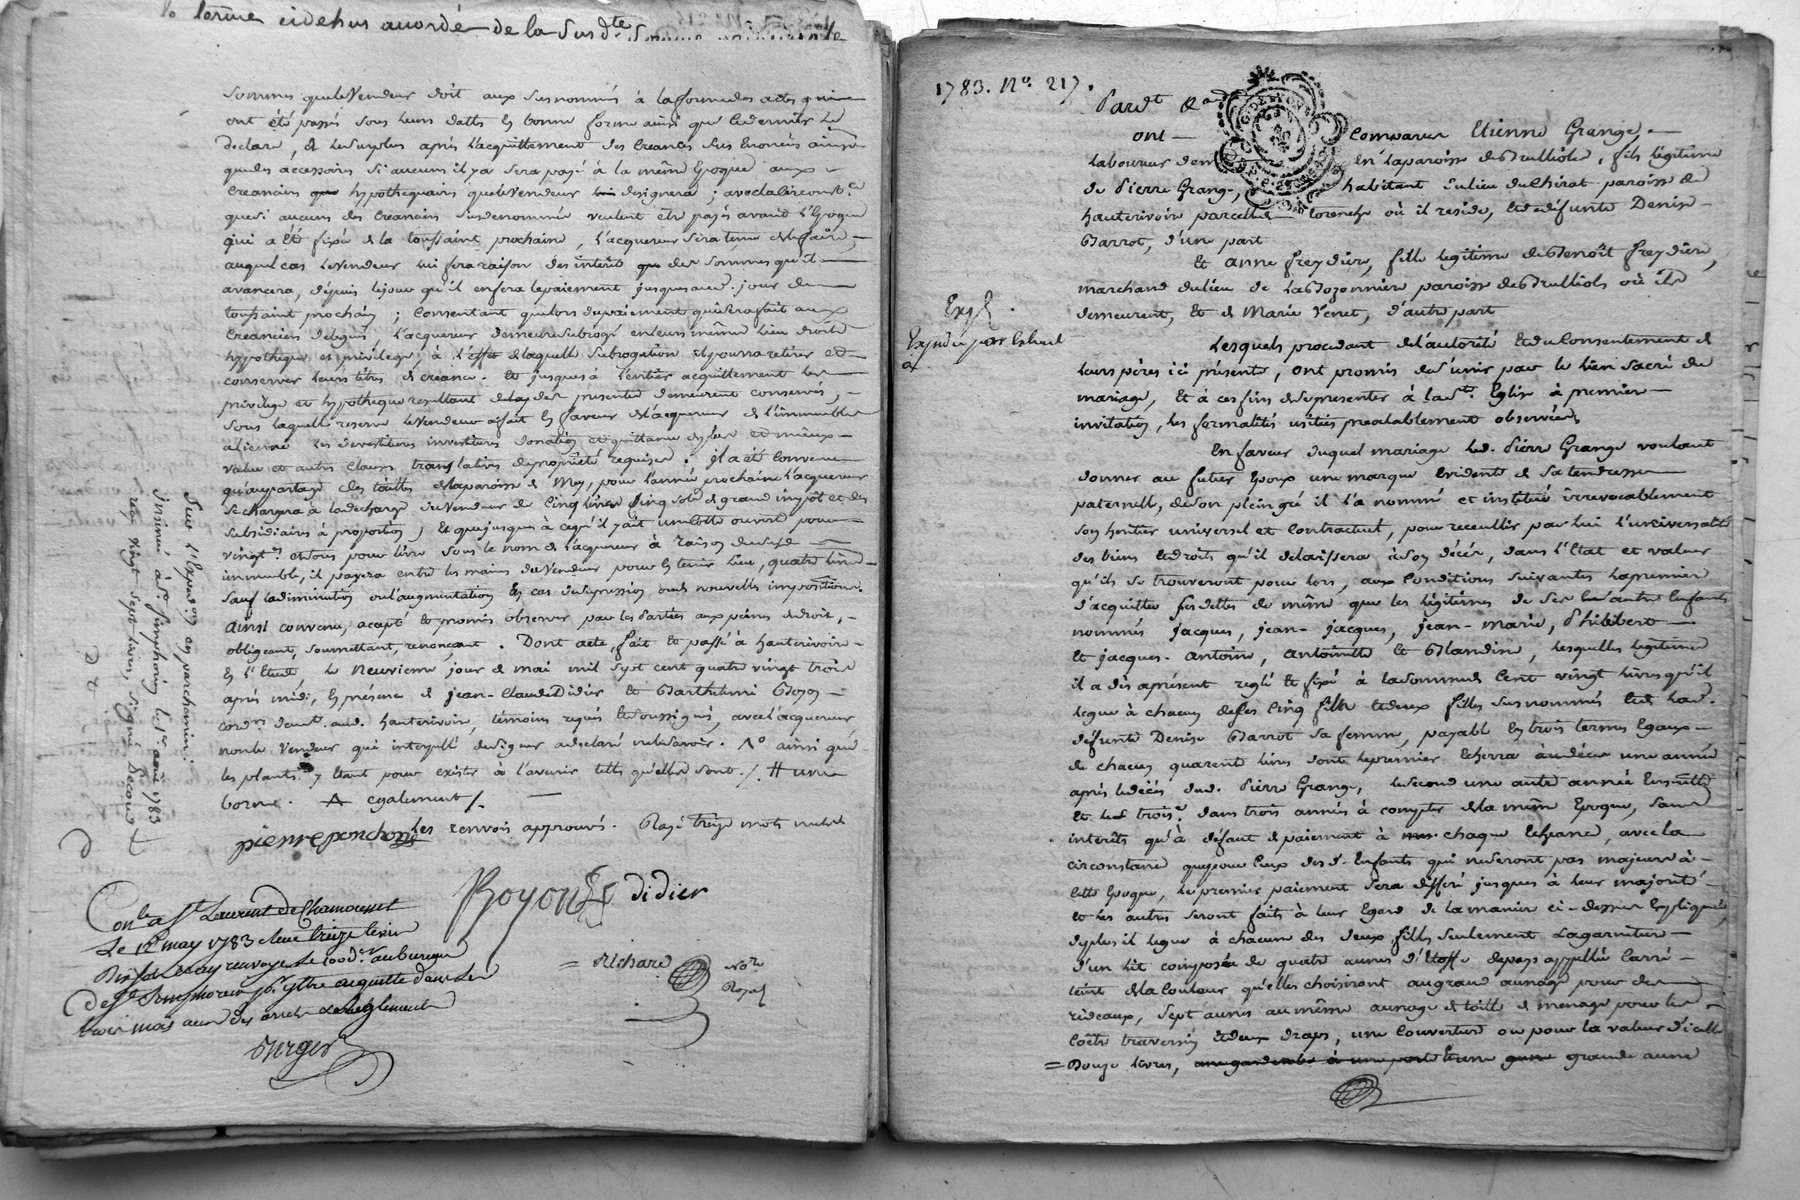 le terme cidessus accordé de la Susd.te Somme
sommes que le Vendeur doit aux susnommés à la forme des actes qui en
ont été passés sous leurs dattes en bonne forme ainsi que le dernier le
declare, et le surplus après l'acquittement des creances sus Enoncées ainsi
que des accessoires si aucuns il y a sera payé à la même Epoque aux
creanciers hypothequaires que le Vendeur designera; avec la circonst.ce
que si aucuns des creanciers susdenommés veulent être payés avant l'Epoque
qui a été fixée de la toussaint prochaine, l'acquereur sera tenu de le faire,
auquel cas le Vendeur lui fera raison des interêts des sommes qu'il
avancera, depuis le jour qu'il en fera le paiement jusques aud. jour de
toussaint prochain; consentant que lors du paiement qui sera fait aux
creanciers delegués, l'acquereur demeure subrogé en leurs même lieu droits
hypotheque et privilege, à l'effet de laquelle subrogation il pourra retirer et
conserver leurs titres de creance. Et jusques à l'entier acquittement les
privilege et hypotheque resultant des presentes demeurent conservés,
sous laquelle reserve le Vendeur a fait en faveur de l'acquereur de l'immeuble
aliené les devestitures investitures donation et quittance de plus et mieux
value et autres clauses translatives de propriété requises. Il a été convenu
qu'au partage des tailles de la paroisse de Meys, pour l'année prochaine l'acquereur
se chargera à la decharge du Vendeur de cinq livres cinq sols de grand impôt et des
subsidiaires à proportion, Et que jusques à ce qu'il y ait une cotte ouverte pour
vingt.es et sous pour livre sous le nom de l'acquereur à raison dud.
immeuble, il payera entre les mains du Vendeur pour en tenir lieu, quatre livres
sauf la diminution ou l'augmentation en cas de supression ou de nouvelle imposition.
Ainsi convenu, accepté et promis observer par les Parties aux peines de droit,
obligeant, soumettant, renonçant. Dont acte, fait et passé à hauterivoire
en l'Etude, le neuvieme jour de mai mil sept cent quatre vingt trois
après midi, en présence de jean-Claude Didier et Barthelemi Boyon
cord.rs demt. aud. hauterivoire, témoins requis et soussignés, avec l'acquereur,
non le Vendeur qui interpellé de signer a declaré ne le savoir. ainsi que
les plants y etant pour exister à l'avenir tels qu'elles sont ./. # une
borne. A egalement /.
pierre ponchon les renvois approuvés. Rayé treize mots nuls
Boyon didier
Richard No.re Royal
Con.lé a St Laurent de Chamousset
Le 12 may 1783 Reçu treize livres
dix sols renvoyé le 100.de au bureau
De St Simphorien p.r y être acquitté dans les
trois mois aux des arrets et Reglements
Verger
Sur l'Exped.on en parchemin:
insinué à St Simphorien le 1er aout 1783
reçu vingt sept livres, signé Decourd
1783. N.o 217.
Expé.
Expedié par Extrait
Pardt
ont comparu Etienne Grange,
Laboureur dem en la paroisse de Brullioles, fils légitime
de Pierre Grange, habitant du lieu du Chirat paroisse de
hauterivoire parcelle lorenche où il reside, et de défunte Denise
Barrot, d'une part
Et Anne freydiere, fille legitime de Benoît freydiere,
marchand du lieu de la Bozonniere paroisse de Brullioles où ils
demeurent, Et de Marie Venet, d'autre part
Lesquels procedant de l'autorité et du consentement de
leurs pères ici présents, ont promis de s'unir par le lien sacré du
mariage, Et à ces fins de se presenter à la s.te Eglise à premiere
invitation, les formalités usitées préalablement observées.
En faveur duquel mariage led. Pierre Grange voulant
donner au futur Epoux une marque evidente de sa tendresse
paternelle, de son plein gré il l'a nommé et institué irrevocablement
son heritier universel et contractuel, pour recueillir par lui l'universalité
des biens et droits qu'il delaissera à son décès, dans l'Etat et valeur
qu'ils se trouveront pour lors, aux conditions suivantes la premiere
d'acquitter ses dettes de même que les légitimes de ses autres Enfants
nommés Jacques, jean-jacques, jean-marie, Philibert
Et jacques-antoine, Antoinette et Blandine, lesquelles legitimes
il a dès apresent reglé Et fixé à la somme de cent vingt livres qu'il
legue à chacun de ses cinq fils et deux filles susnommés et de lad.
défunte Denise Barrot sa femme, payable en trois termes Egaux
de chacun quarente livres dont le premier Echerra une année
après le décès dud. Pierre Grange, le second une autre année Ensuitte
Et le trois.e dans trois années à compter de la même Epoque, sans
interêts qu'à défaut de paiement à chaque Echeance, avec la
circonstance que pour ceux desd. Enfants qui ne seront pas majeurs à
cette Epoque, le premier paiement sera différé jusques à leur majorité
Et les autres seront faits à leur Egard de la maniere ci-dessus Expliquée,
deplus il legue à chacune des deux filles seulement la garniture
d'un lit composée de quatre aunes d'étoffe du pays appellée carré
teint de la couleur qu'elles choisiront au grand aunage pour des
rideaux, sept aunes au même aunage de toile de menage pour le
coëtre traversin et deux draps, une couverture ou pour la valeur d'icelle
= Douze livres, grande aune